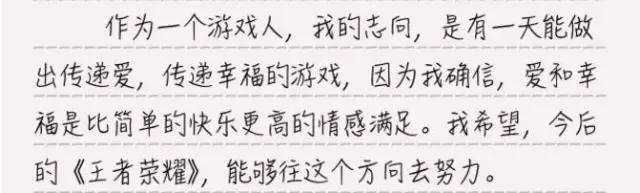 作为一个游戏人，我的志向，是有一天能做
出传递爱，传递幸福的游戏，因为我确信，爱和幸
福是比简单的快乐更高的情感满足。我希望，今后
的《王者荣耀》，能够往这个方向去努力。